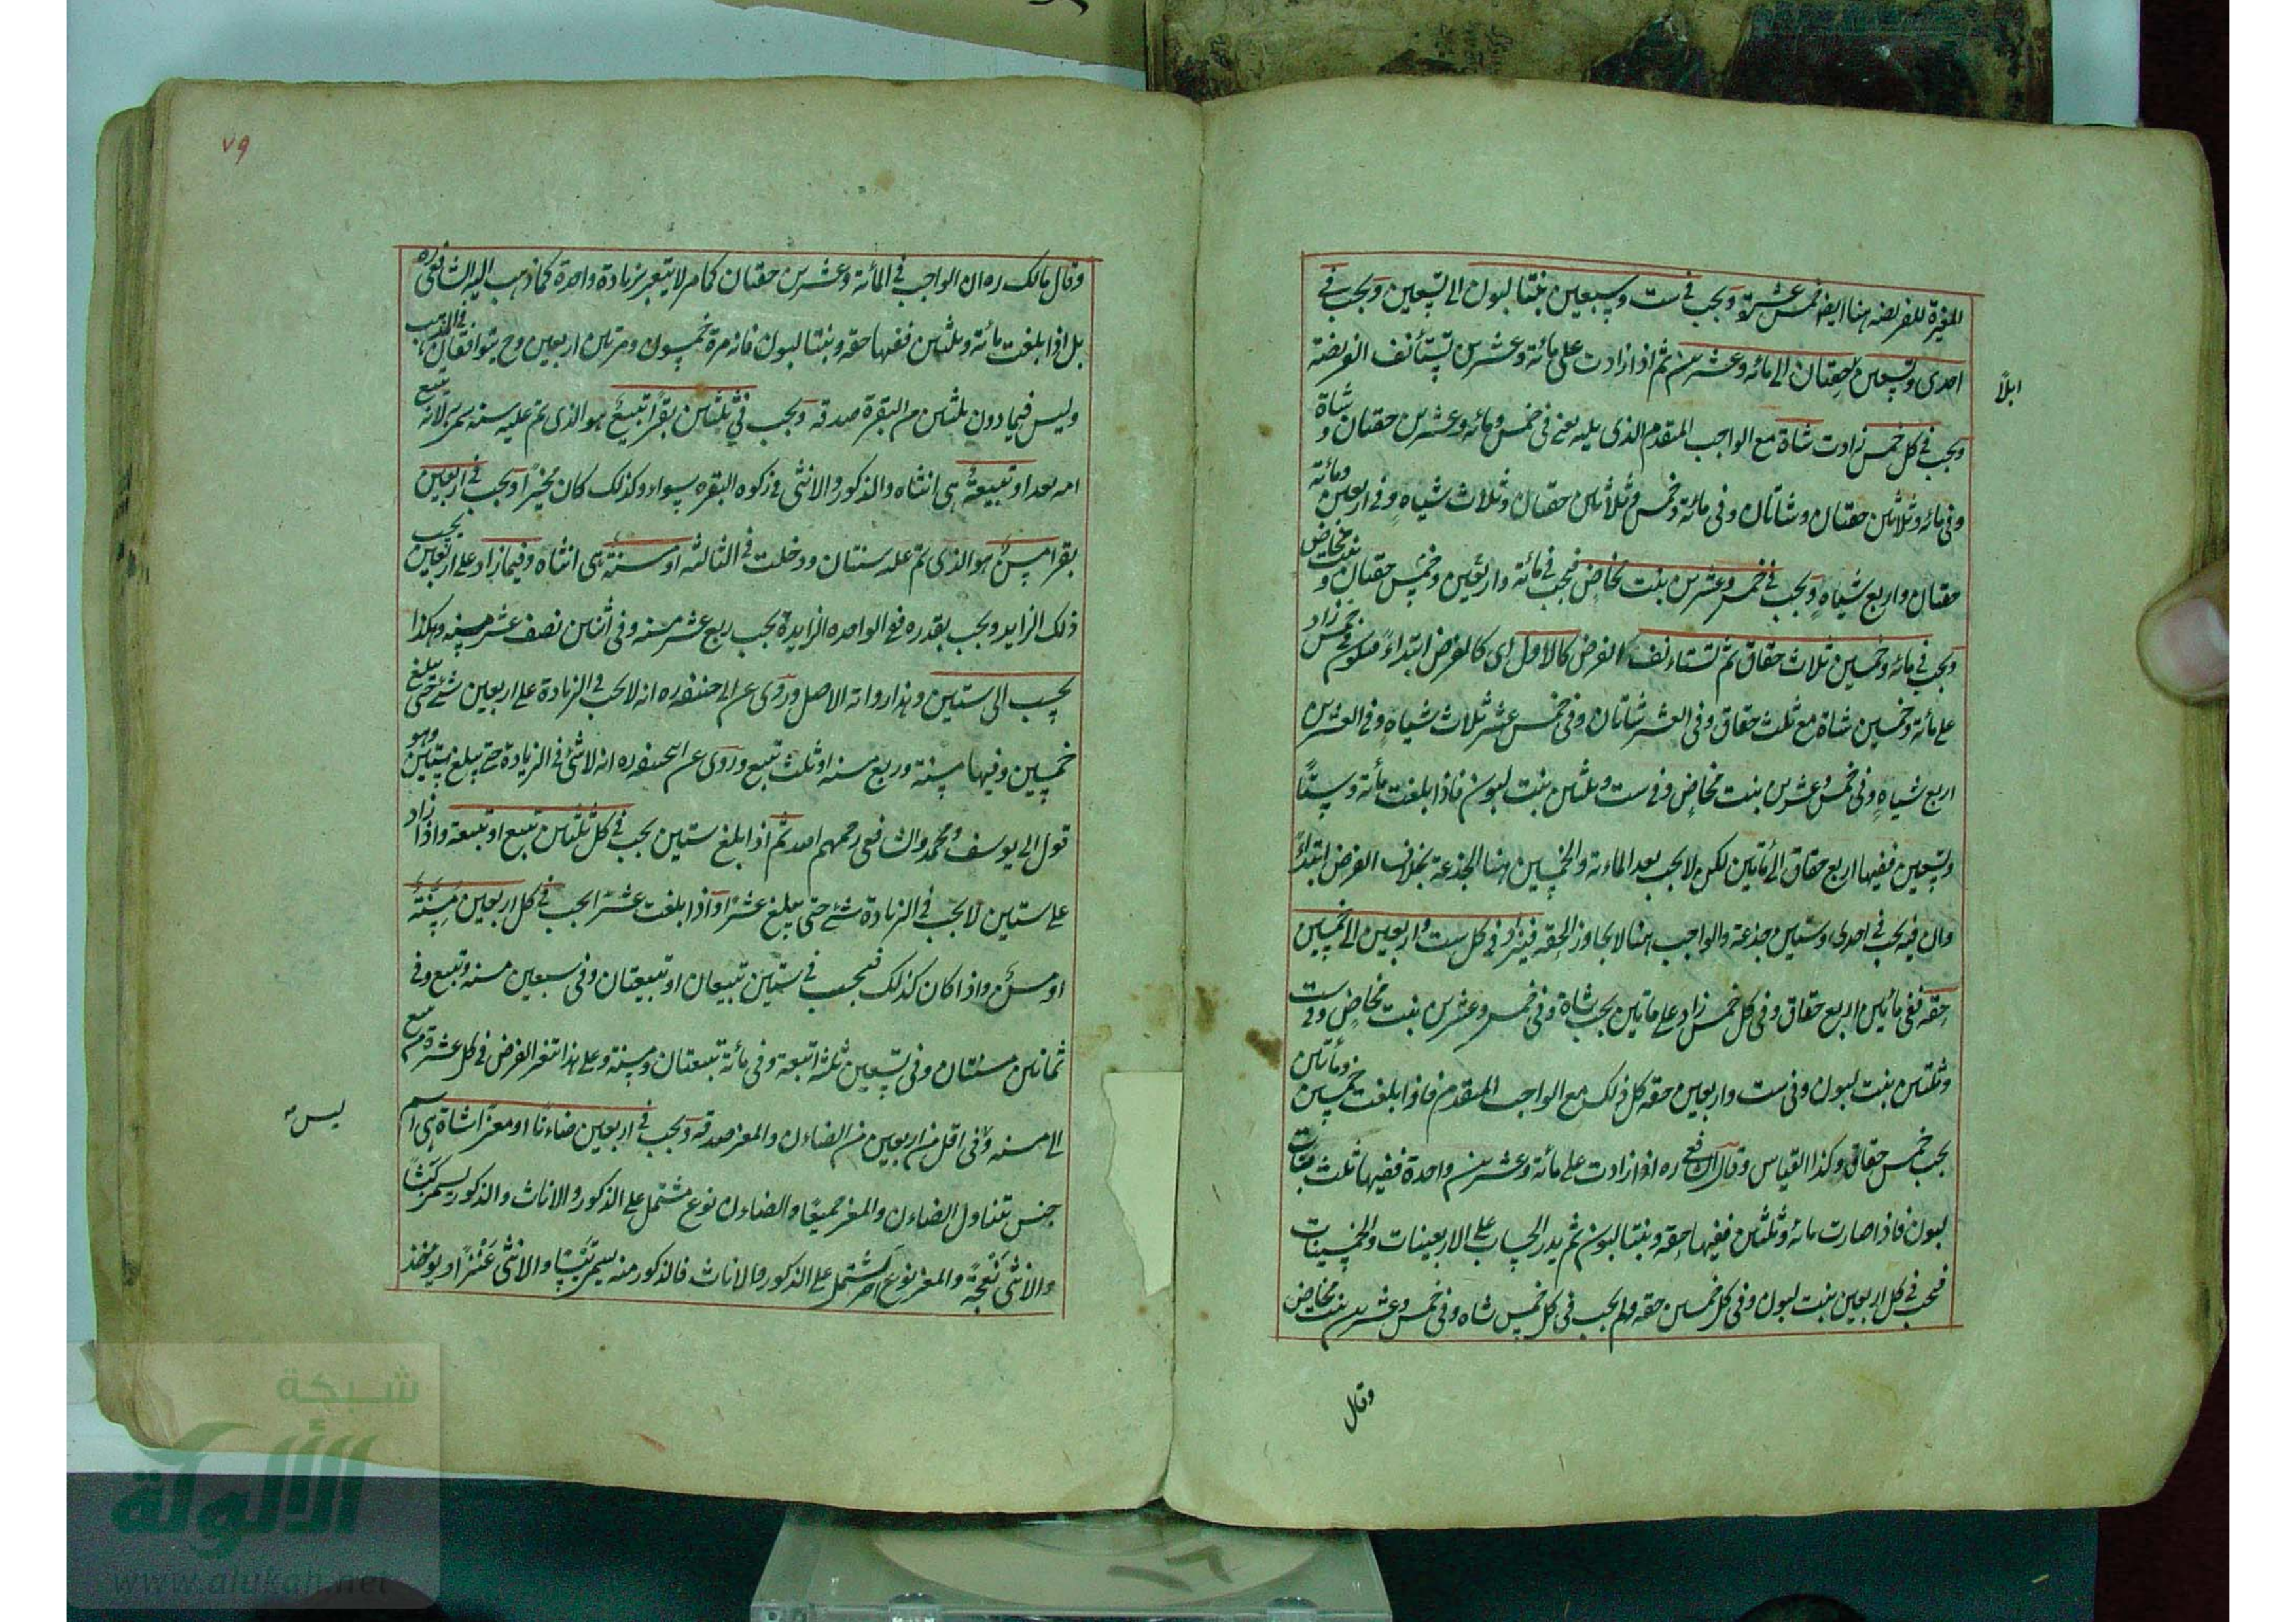 المغيرة للفريضة هنا ايضا خمس عشرة ويجب في ست وسبعين بنتا لبون الى تسعين ويجب في
احدى وتسعين حقتان الى مائه وعشرين ثم اذا زادت على مائة وعشرين تستأنف الفريضة
ابلاً
ويجب في كل خمس زادت شاة مع الواجب المتقدم الذى يليه يعنى فى خمس ومائه وعشرين حقتان وشاة
وفى مائه وثلاثين حقتان وشاتان وفى مائة وخمس وثلاثين حقتان وثلاث شياه وفى اربعين ومائة
حقتان واربع شياه ويجب في خمس وعشرين بنت مخاض فيجب في مائة واربعين وخمس حقتان وبنت مخاض
ويجب في مائه وخمسين ثلاث حقاق ثم تستاءنف الفرض كالاول اى كالفرض ابتداءً فيكون في خمس زاد
على مائة وخمسين شاة مع ثلث حقاق وفى العشر شاتان وفى خمس عشر ثلاث شياه وفى العشرين
اربع شياه وفى خمس وعشرين بنت مخاض وفى ست وثلثين بنت لبون فاذا بلغت مأئة وستًا
وتسعين ففيها اربع حقاق الى مأتين لكن لا يجب بعد الماءئة والخمسين هنا الجذعة بخلاف الفرض ابتداءً
وان فيه يجب في احدى وستين جذعة والواجب هنا لا يجاوز الحقه فيزاد في كل ست واربعين الى خمسين
حقه ففى مائتين اربع حقاق وفى كل خمس زاد على مأتين يجب شاة وفى خمس وعشرين بنت مخاض وفى ست
وثلثين بنت لبون وفى ست واربعين حقه كل ذلك مع الواجب المتقدم فاذا بلغت خمسين ومأتين
يجب خمس حقاق وكذا القياس وقال الشافعى ره اذا زادت على مائة وعشرين واحدة ففيها ثلث بنات
لبون فاذا صارت مائه وثلثين ففيها حقه وبنتا لبون ثم يدر الحساب على الاربعينات والخمسينات
فيجب في كل اربعين بنت لبون وفى كل خمسين حقه ولم يجب فى كل خمس شاه وفى خمس وعشرين بنت مخاض
وقال
٧٩
وقال مالك ره ان الواجب في المائة وعشرين حقتان كما مر لا يتغير بزيادة واحدة كما ذهب اليه الشافعى ره
بل اذا بلغت مائة وثلثين ففيها حقه وبنتا لبون فانه مرة خمسون ومرتين اربعين وح يتوافقان في الترتيب
وليس فيما دون ثلثين من البقرة صدقه ويجب في ثلثين بقرًا تبيع هو الذى تم عليه سنه سمى به لانه تبيع
امه بعد او تبيعة هى انثاه والذكور والانثى في زكوه البقره سواء وكذلك كان مخيرًا ويجب في اربعين
بقرا مسن هو الذى تم عله سنتان ودخلت في الثالثه او مسنة هى انثاه وفيما زاد على اربعين يجب
ذلك الزايد ويجب بقدره فى الواحده الزايدة يجب ربع عشر مسنه وفى اثنين نصف عشر مسنه وهكذا
يحسب الى ستين وهذا رواية الاصل وروى عن ابى حنيفه ره انه لا يجب فى الزيادة على اربعين شئ حتى يبلغ
خمسين وفيها مسنة وربع مسنه او ثلث تبيع وروى عن ابيحنيفه ره انه لا شئ فى الزيادة حتى يبلغ ستين وهو
قول ابى يوسف ومحمد والشافعى رحمهم الله ثم اذا بلغ ستين يجب في كل ثلثين تبيع او تبيعة واذا زاد
على ستين لا يجب في الزيادة شئ حتى يبلغ عشرًا واذا بلغت عشرًا يجب في كل اربعين مسنة
او مسن واذا كان كذلك فيجب في ستين تبيعان او تبيعتان وفى سبعين مسنه وتبيع وفى
ثمانين مسنتان وفى تسعين ثلثة اتبعة وفى مائة تبيعتان ومسنة وعلى هذا تتغير الفرض في كل عشرة من تبيع
الى مسنه وفى اقل من اربعين من الضاءن والمعز صدقه ويجب في اربعين ضاءنًا او معزًا شاة هى اسم
ليس
جنس تتناول الضاءن والمعز جميعًا والضاءن نوع مشتمل على الذكور والاناث والذكور يسمى كبشًا
والانثى نعجةً والمعز نوع اخر مشتمل على الذكور والاناث فالذكور منه يسمى تيسًا والانثى عنزًا ويؤخذ
شبكة
الألوكة
www.alukah.net